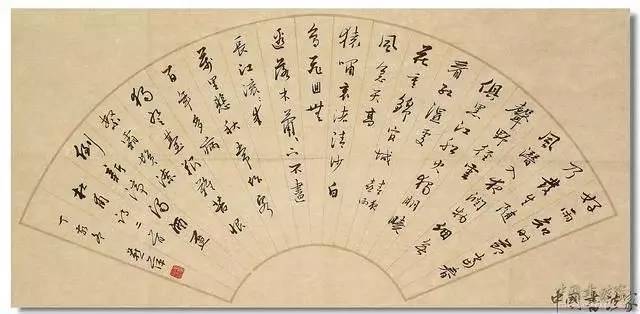 好雨知时节当春
乃发生随
风潜入夜润物细无
声野径云
俱黑江船火独明晓
看红湿处
花重锦官城春夜喜雨
风急天高
猿啸哀渚清沙白
鸟飞回无
边落木萧〻下不尽
长江滚〻来
万里悲秋常作客
百年多病
独登台艰难苦恨
繁霜鬓潦
倒新停浊酒杯
杜甫诗二首
中國書法家